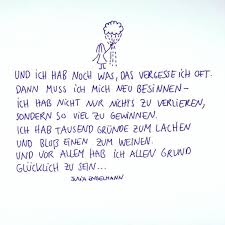 UND ICH HAB NOCH WAS, DAS VERGESSE ICH OFT.
DANN MUSS ICH MICH NEU BESINNEN–
ICH HAB NICHT NUR NICHTS ZU VERLIEREN,
SONDERN SO VIEL ZU GEWINNEN.
ICH HAB TAUSEND GRÜNDE ZUM LACHEN
UND BLOß EINEN ZUM WEINEN.
UND VOR ALLEM HAB ICH ALLEN GRUND
GLÜCKLICH ZU SEIN...
JULIA ENGELMANN